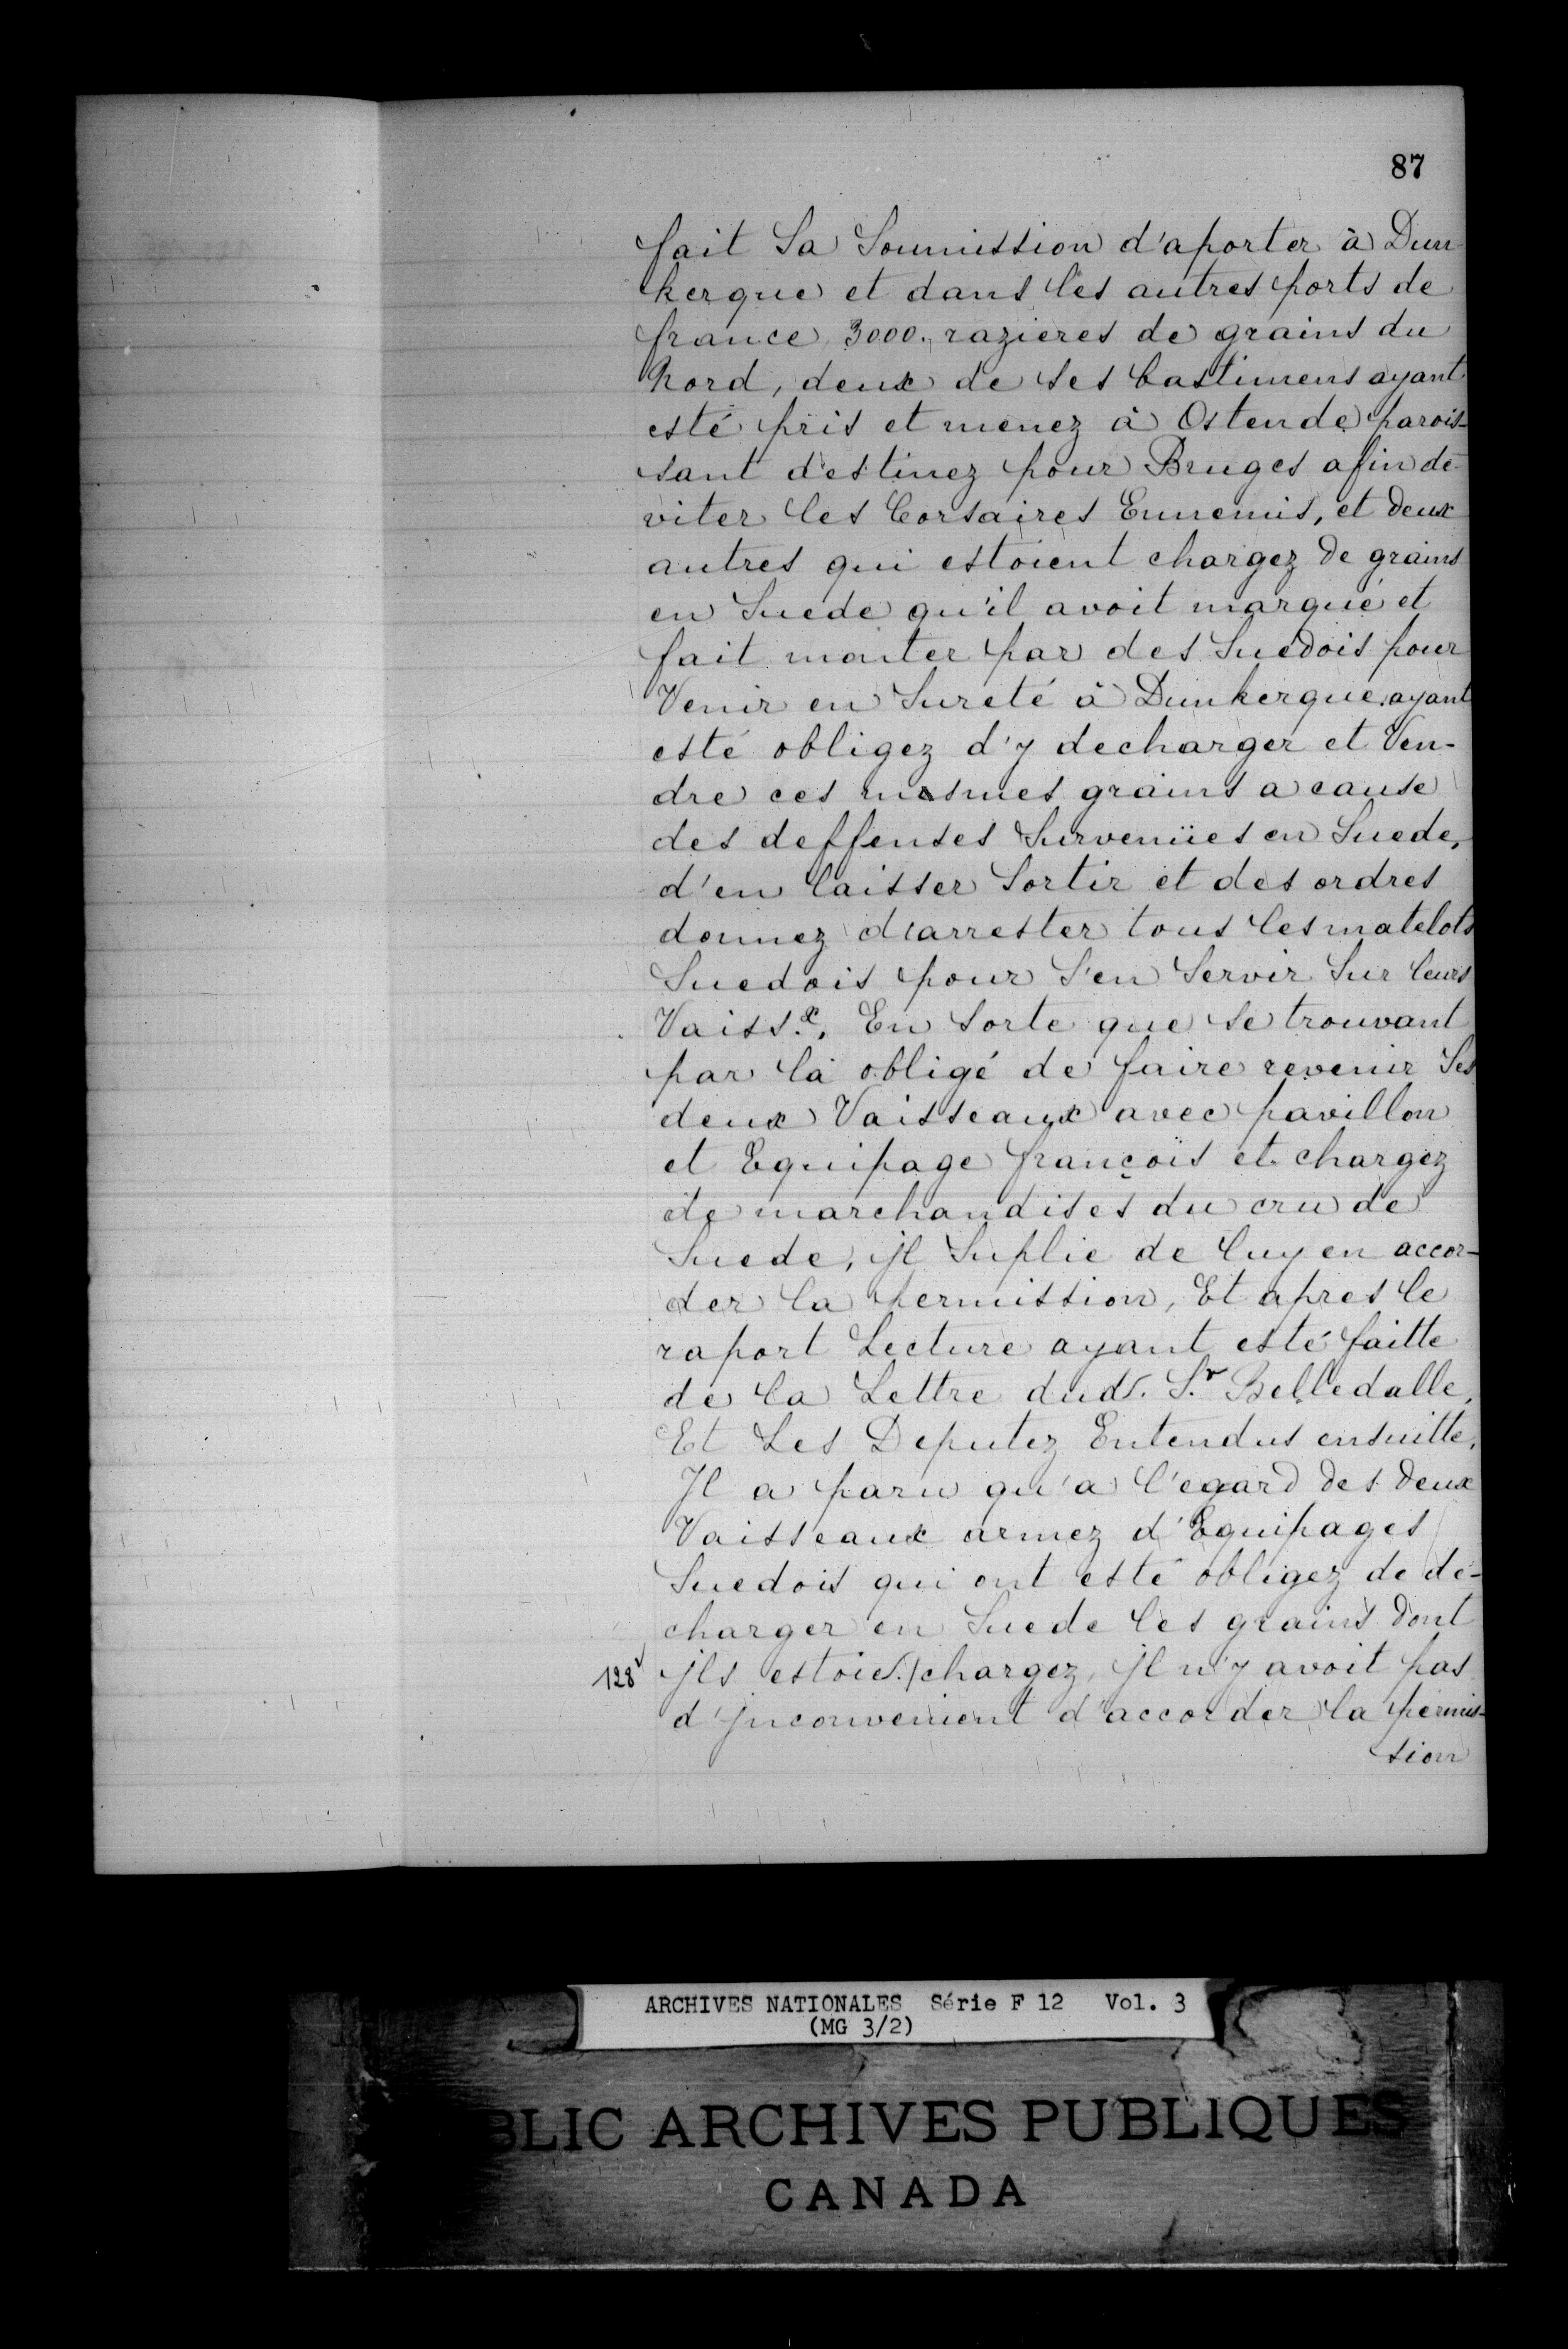 87
fait Sa Soumission d'aporter à Dun
kerque et dans les autres ports de
france 3000. razieres de grains du
Nord, deux de ses bastimens ayant
esté pris et menez à Ostende parois-
sant destinez pour Bruges afin dé-
viter les Corsaires Ennemis, et deux
autres qui estoient chargez de grains
en Suede qu'il avoit marqué et
fait monter par des Suedois pour
Venir en Sureté à Dunkerque, ayant
esté obligez d'y decharger et Ven-
dre ces mesmes grains a cause
des deffenses Survenües en Suede,
d'en laisser Sortir et des ordres
donnez d'arrester tous les matelots
Suedois pour S'en Servir Sur leurs
Vaiss.x, En Sorte que se trouvant
par là obligé de faire revenir Ses
deux Vaisseaux avec pavillon
et Equipage françois et chargez
de marchandises du cru de
Suede, jl Suplie de luy en accor-
der la permission, Et apres le
raport Lecture ayant esté faitte
de la Lettre dud. S.r Belledalle,
Et Les Deputez Entendus ensuitte,
Il a paru qu'a l'egard des deux
Vaisseaux armez d'Equipages
Suedois qui ont esté obligez de de-
charger en Suede les grains dont
128v jls estoie./chargez, jl n'y avoit pas
d'jnconvenient d'accorder la permis-
sion
ARCHIVES NATIONALES Série F 12 Vol. 3
(MG 3/2)
BLIC ARCHIVES PUBLIQUES
CANADA